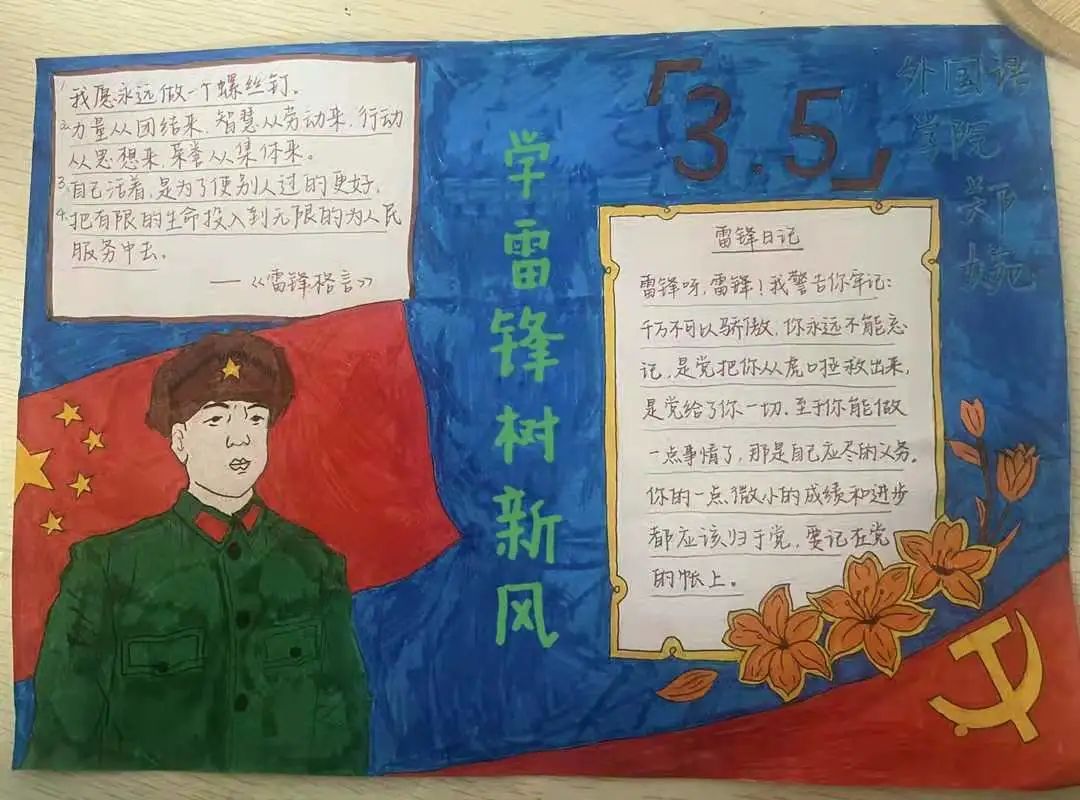 1 我愿永远做一个螺丝钉。
2.力量从团结来，智慧从劳动来，行动
从思想来，荣誉从集体来。
3.自己活着，是为了使别人过的更好。
4.把有限的生命投入到无限的为人民
服务中去。
——《雷锋格言》
学雷锋树新风
「3.5」
外国语
学院
郑
婉
雷锋日记
雷锋呀，雷锋！我警告你牢记：
千万不可以骄傲，你永远不能忘
记，是党把你从虎口拯救出来，
是党给了你一切，至于你能做
一点事情了，那是自己应尽的义务。
你的一点微小的成绩和进步
都应该归于党，要记在党
的帐上。